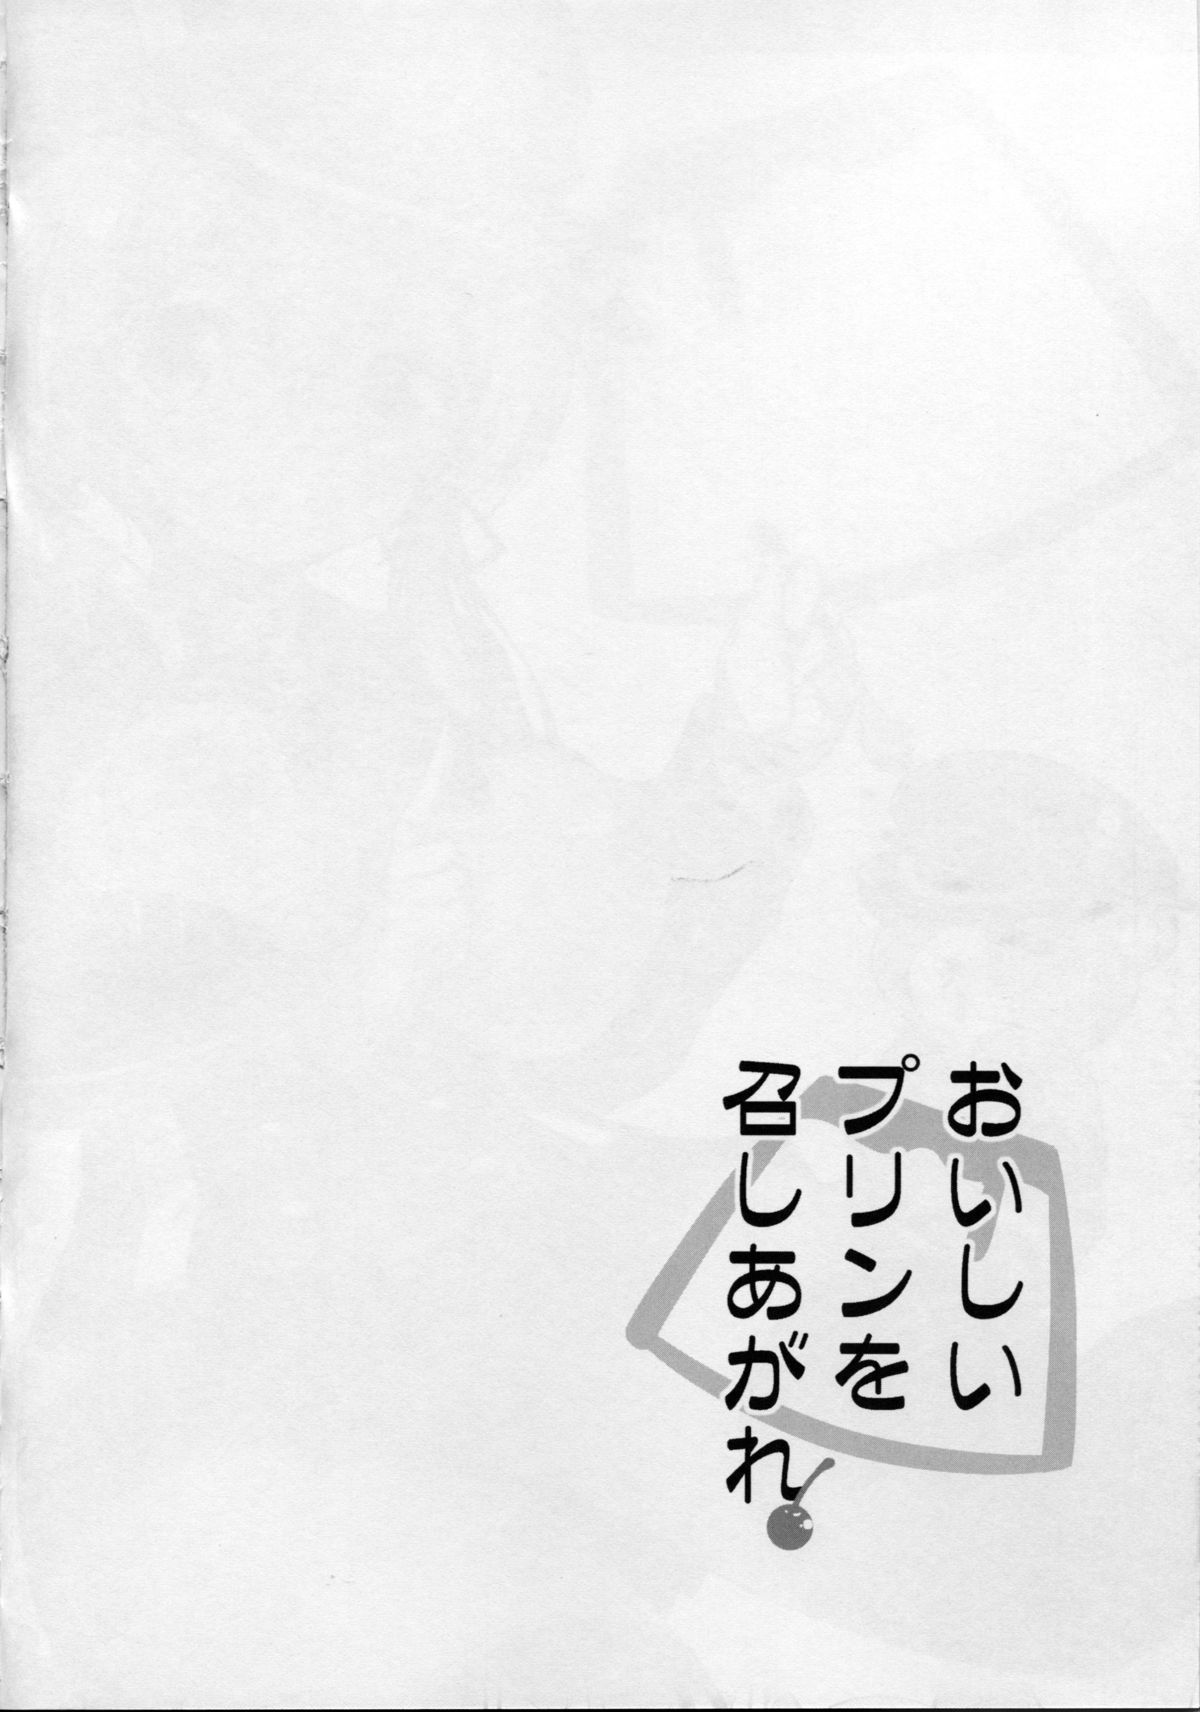 おいしい
プリンを
召しあがれ